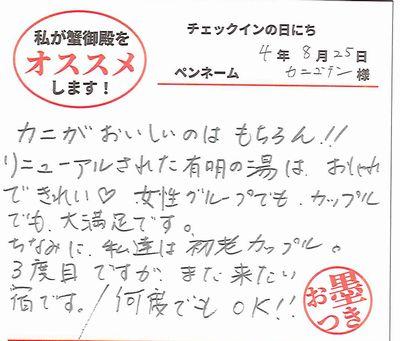 私が蟹御殿を
オススメ
します!
チェックインの日にち
4年 8月 25日
ペンネーム カニゴテン 様
カニがおいしいのは もちろん!!
リニューアルされた有明の湯は、おしゃれ
できれい♡ 女性グループでも、カップル
でも、大満足です。
ちなみに、私達は初老カップル。
3度目ですが、また来たい
宿です。/何度でもOK!!
お墨つき